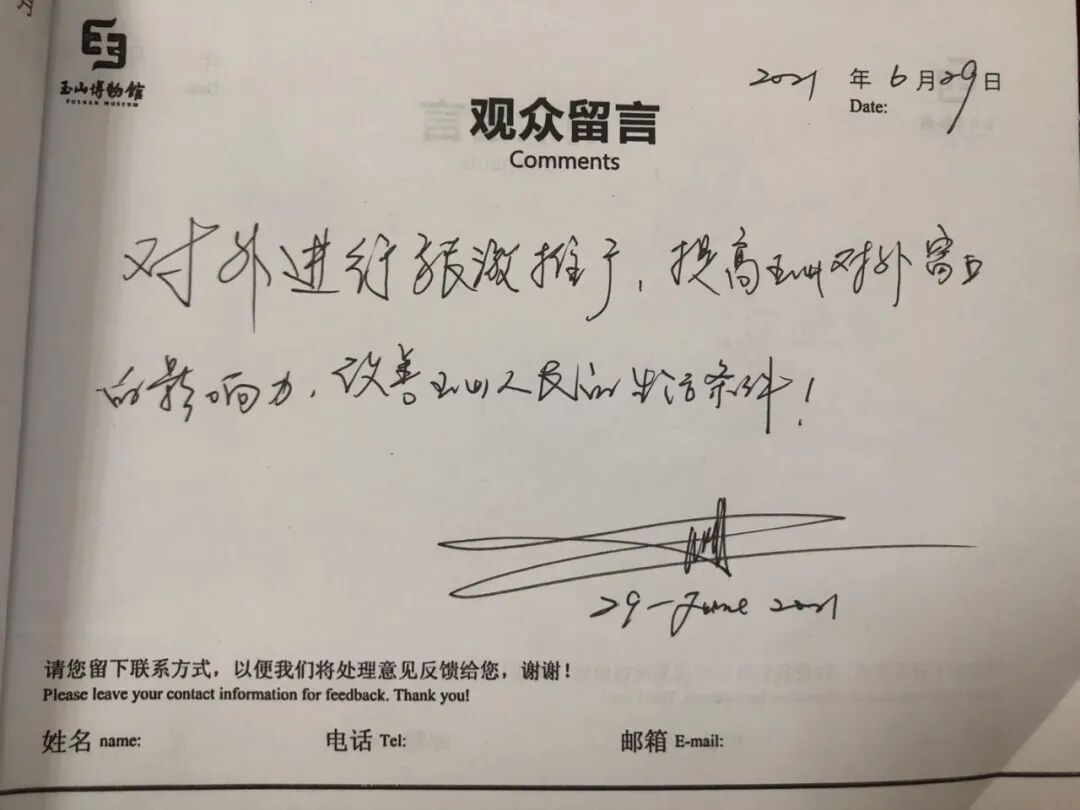 玉山博物馆
YUSHAN MUSEUM
2021 年 6 月 29 日
Date:
观众留言
Comments
对外进行推广,提高玉山对外窗口
的影响力,改善玉山人民的生活条件!
29-June 2021
请您留下联系方式,以便我们将处理意见反馈给您,谢谢!
Please leave your contact information for feedback. Thank you!
姓名 name: 电话 Tel: 邮箱 E-mail: